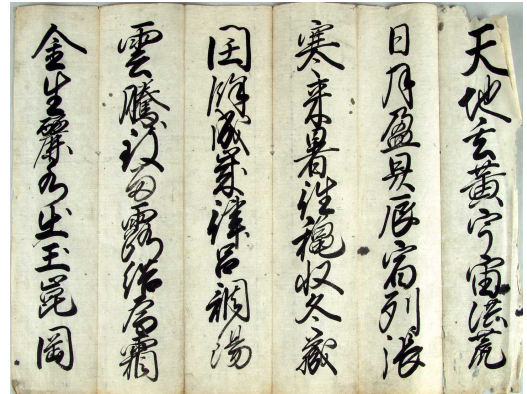 天地玄黃宇宙洪荒
日月盈昃辰宿列張
寒来暑往穐収冬藏
閏餘成歳律呂調陽
雲騰致雨露結為霜
金生麗水出玉崑岡